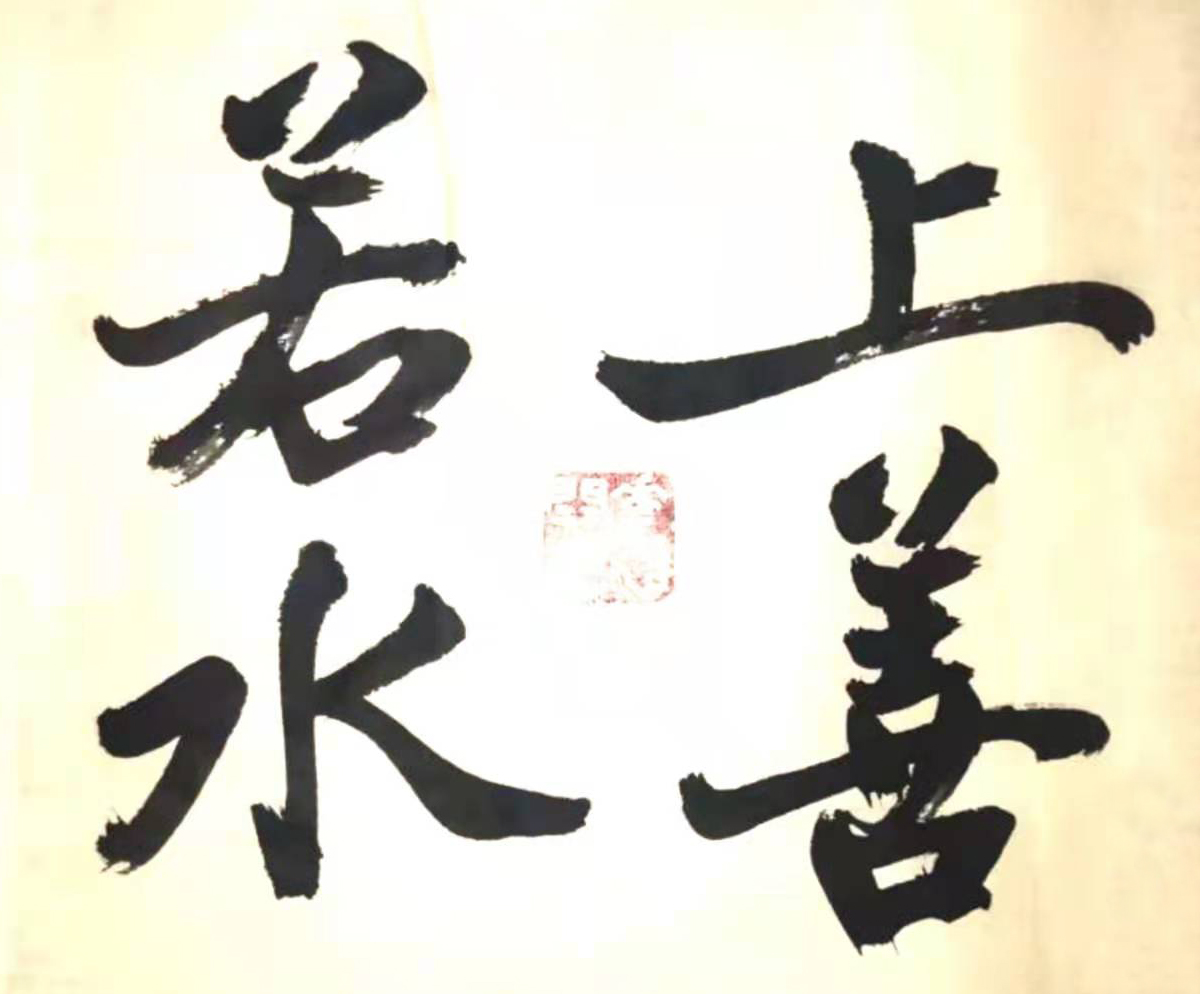 上善
若水